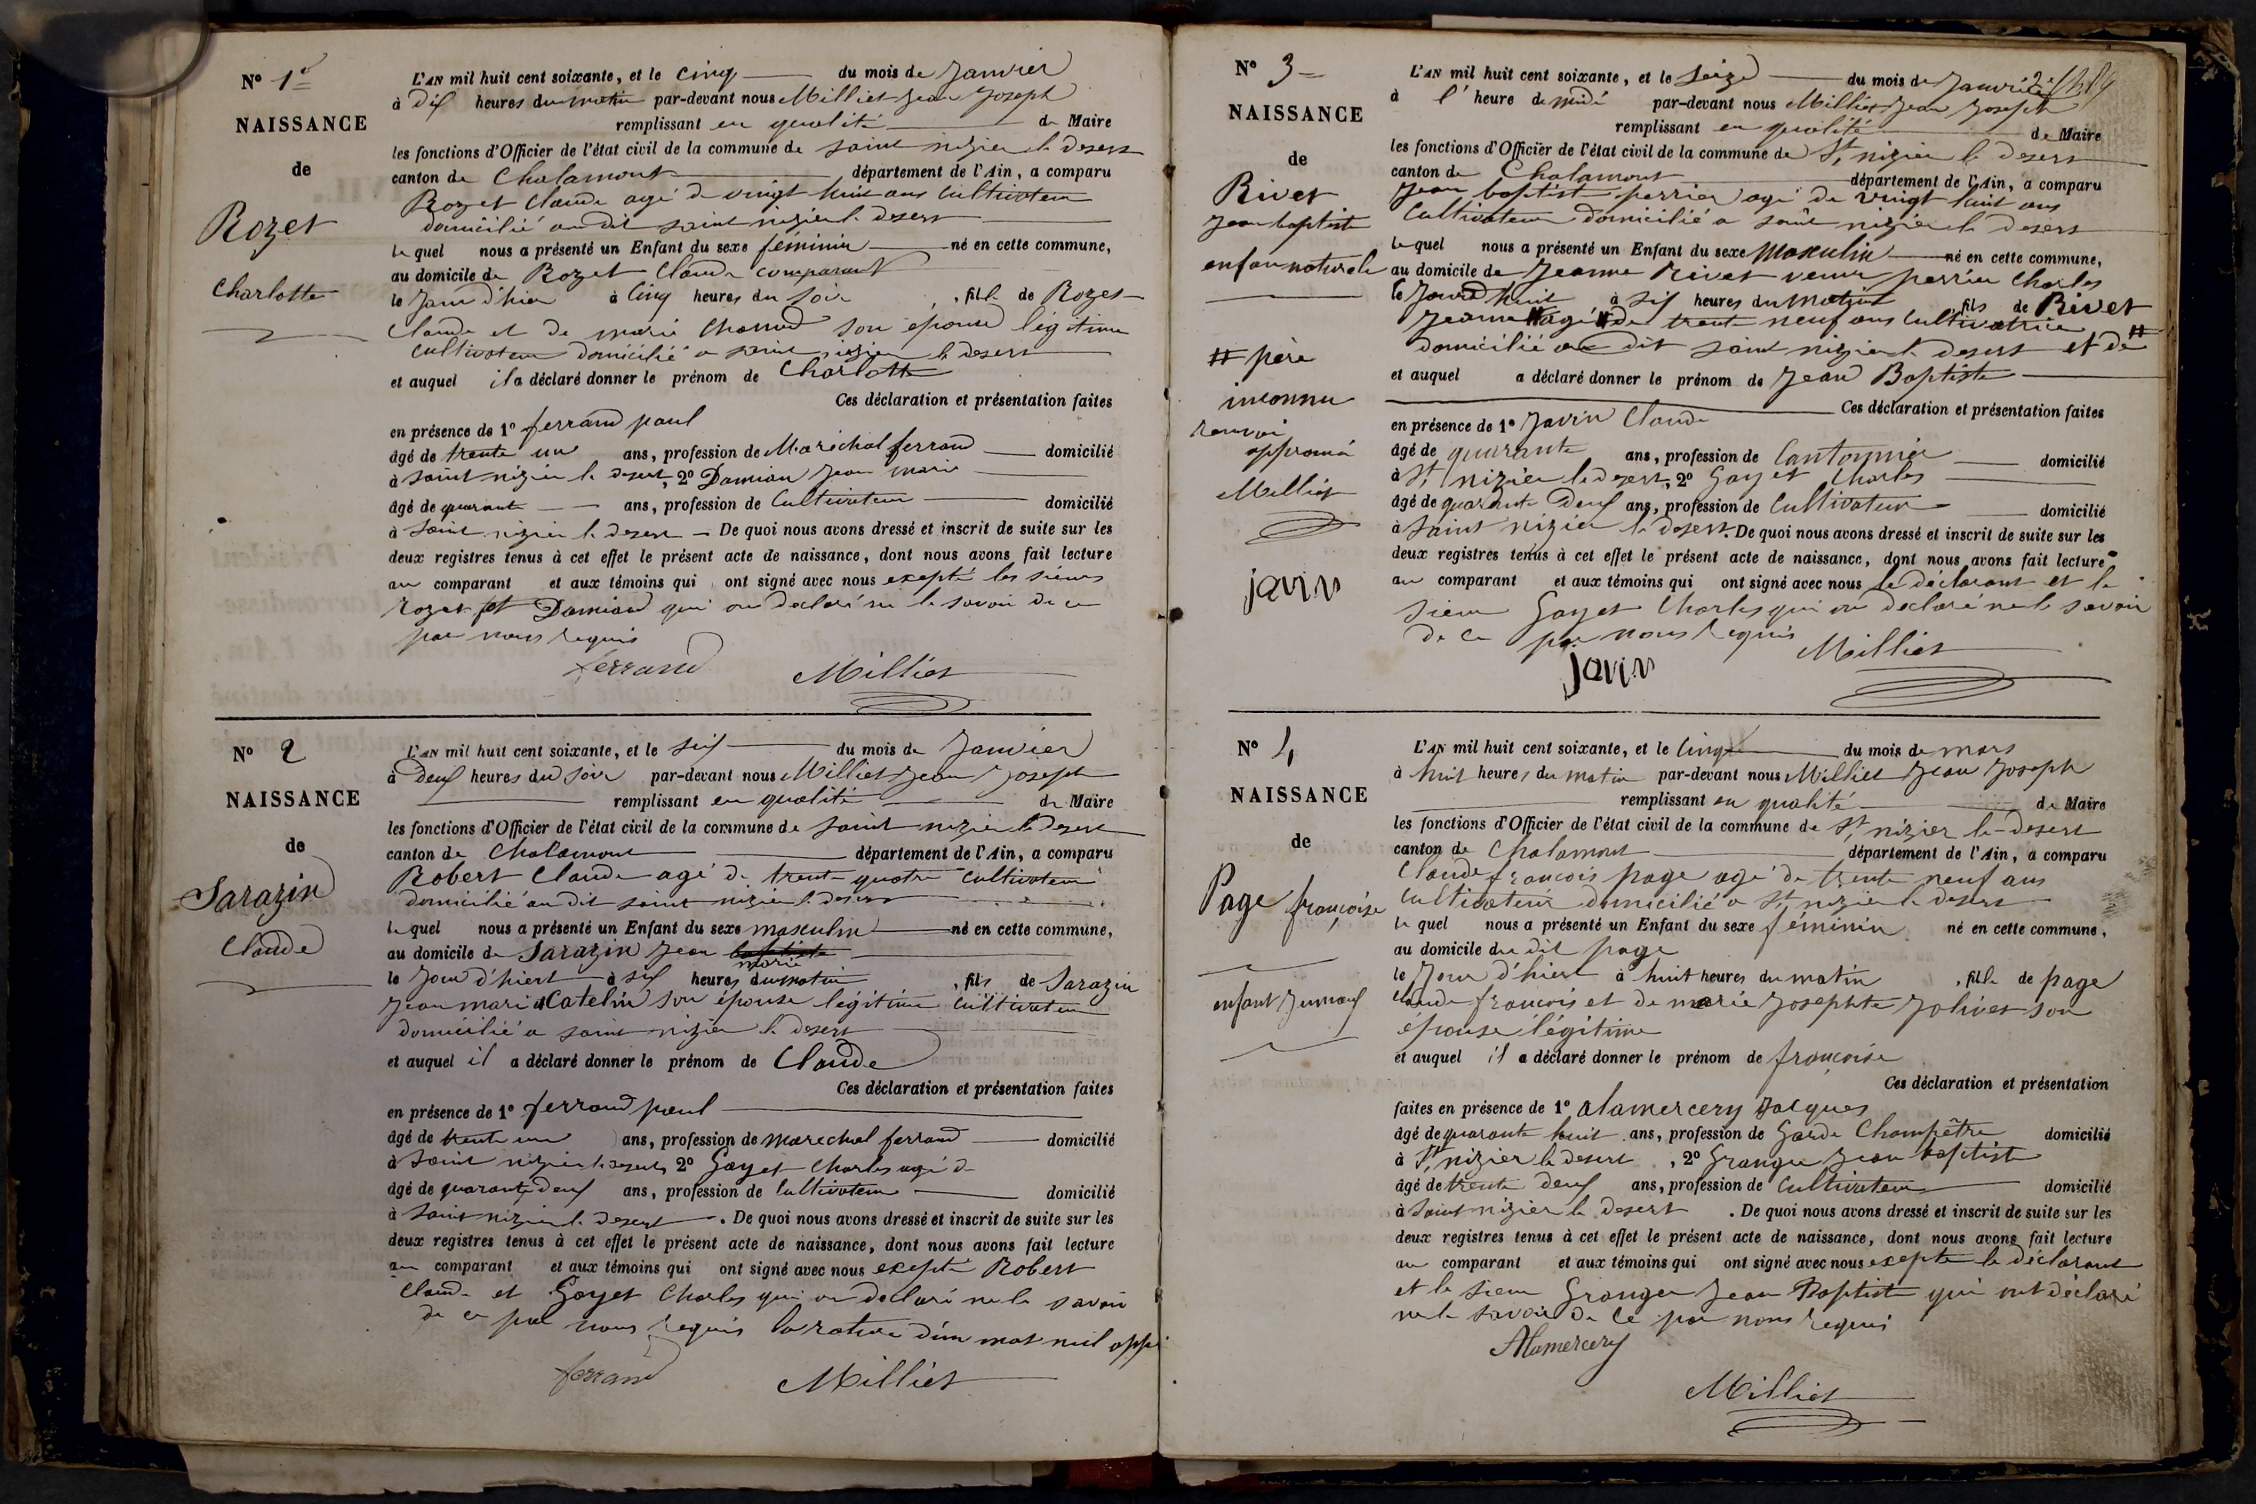 N° 1er
NAISSANCE
de
Rozet
Charlotte
L'AN mil huit cent soixante, et le cinq du mois de Janvier
à dix heures du matin par-devant nous Milliet Jean Joseph
remplissant en qualité de Maire
les fonctions d'Officier de l'état civil de la commune de saint nizier le desert
canton de Chalamont département de l'Ain, a comparu
Rozet Claude agé de vingt huit ans Cultivateur
domicilié au dit saint nizier le desert
le quel nous a présenté un Enfant du sexe féminin né en cette commune,
au domicile de Rozet Claude comparant
le jour d'hier à Cinq heures du soir , fille de Rozet
Claude et de marie son épouse légitime
cultivateur domicilié a saint nizier le desert
et auquel il a déclaré donner le prénom de Charlotte
Ces déclaration et présentation faites
en présence de 1° ferrand paul
âgé de trente un ans, profession de Maréchal ferrand domicilié
à saint nizier le desert, 2° Damian Jean marie
âgé de quarante ans, profession de Cultivateur domicilié
à saint nizier le desert De quoi nous avons dressé et inscrit de suite sur les
deux registres tenus à cet effet le présent acte de naissance, dont nous avons fait lecture
au comparant et aux témoins qui ont signé avec nous excepté les sieurs
rozet et Damian qui on declaré ne le savoir de ce
par nous requis
ferrand Milliet
N° 2
NAISSANCE
de
Sarazin
Claude
L'AN mil huit cent soixante, et le six du mois de Janvier
à deux heures du soir par-devant nous Milliet Jean Joseph
remplissant en qualité de Maire
les fonctions d'Officier de l'état civil de la commune de saint nizier le desert
canton de Chalamont département de l'Ain, a comparu
Robert Claude agé de trente quatre cultivateur
domicilié au dit saint nizier le desert
le quel nous a présenté un Enfant du sexe masculin né en cette commune,
au domicile de Sarazin Jean baptiste
marie
le Jour d'hiert à six heures du matin , fils de Sarazin
Jean marie Catelin son épouse légitime cultivateur
domicilié a saint nizier le desert
et auquel il a déclaré donner le prénom de Claude
Ces déclaration et présentation faites
en présence de 1° ferrand paul
âgé de trente un ans, profession de marechal ferrand domicilié
à saint nizier le desert, 2° Gayet Charles agé de
âgé de quarante deux ans, profession de Cultivateur domicilié
à saint nizier le desert . De quoi nous avons dressé et inscrit de suite sur les
deux registres tenus à cet effet le présent acte de naissance, dont nous avons fait lecture
au comparant et aux témoins qui ont signé avec nous excepté Robert
Claude et Gayet Charles qui on déclaré ne le savoir
de ce par nous requis la rature d'un mot nul
ferrand Milliet
N° 3
NAISSANCE
de
Rivet
Jean baptiste
enfan naturele
# père
inconnu
renvoi
approuvé
Milliet
javin
L'AN mil huit cent soixante, et le Seize du mois de Janvier
à l' heure de midi par-devant nous Milliet Jean Joseph
remplissant en qualité de Maire
les fonctions d'Officier de l'état civil de la commune de St nizier le desert
canton de Chalamont département de l'Ain, a comparu
Jean baptist perrier agé de vingt huit ans
Cultivateur domicilié a saint nizier le desert
le quel nous a présenté un Enfant du sexe Masculin né en cette commune,
au domicile de Jeanne Rivet veuve perrier Charles
le Jourd'huit à six heures du matin fils de Rivet
Jeanne agé de trente neuf ans Cultivatrice
domicilié au dit saint nizier le desert et de #
et auquel a déclaré donner le prénom de Jean Baptiste
Ces déclaration et présentation faites
en présence de 1° Javin Claude
âgé de quarante ans, profession de Cantonnier domicilié
à St nizier le desert, 2° Gayet Charles
âgé de quarante Deux ans, profession de Cultivateur domicilié
à Saint nizier le desert. De quoi nous avons dressé et inscrit de suite sur les
deux registres tenus à cet effet le présent acte de naissance, dont nous avons fait lecture
au comparant et aux témoins qui ont signé avec nous le déclarant et le
sieur Gayet Charles qui on declaré ne le savoir
de ce par nous requis
javin Milliet
N° 4
NAISSANCE
de
Page françoise
enfant Jumeaux
L'AN mil huit cent soixante, et le Cinq du mois de mars
à huit heures du matin par-devant nous Milliet Jean Joseph
remplissant en qualité de Maire
les fonctions d'Officier de l'état civil de la commune de St nizier le desert
canton de Chalamont département de l'Ain, a comparu
Claude francois page agé de trente neuf ans
cultivateur domicilié a St nizier le desert
le quel nous a présenté un Enfant du sexe féminin né en cette commune,
au domicile du dit page
le Jour d'hier à huit heures du matin , fille de page
Claude francois et de marie Josephte Jolivet son
épouse légitime
et auquel il a déclaré donner le prénom de françoise
Ces déclaration et présentation
faites en présence de 1° Alamercery Jacques
âgé de quarante huit ans, profession de Garde Champêtre domicilié
à St nizier le desert , 2° Granger Jean baptiste
âgé de trente deux ans, profession de Cultivateur domicilié
à Saint nizier le desert . De quoi nous avons dressé et inscrit de suite sur les
deux registres tenus à cet effet le présent acte de naissance, dont nous avons fait lecture
au comparant et aux témoins qui ont signé avec nous excepte le déclarant
et le sieur Granger Jean Baptist qui ont déclaré
ne le savoir de ce par nous requis
Alamercery
Milliet